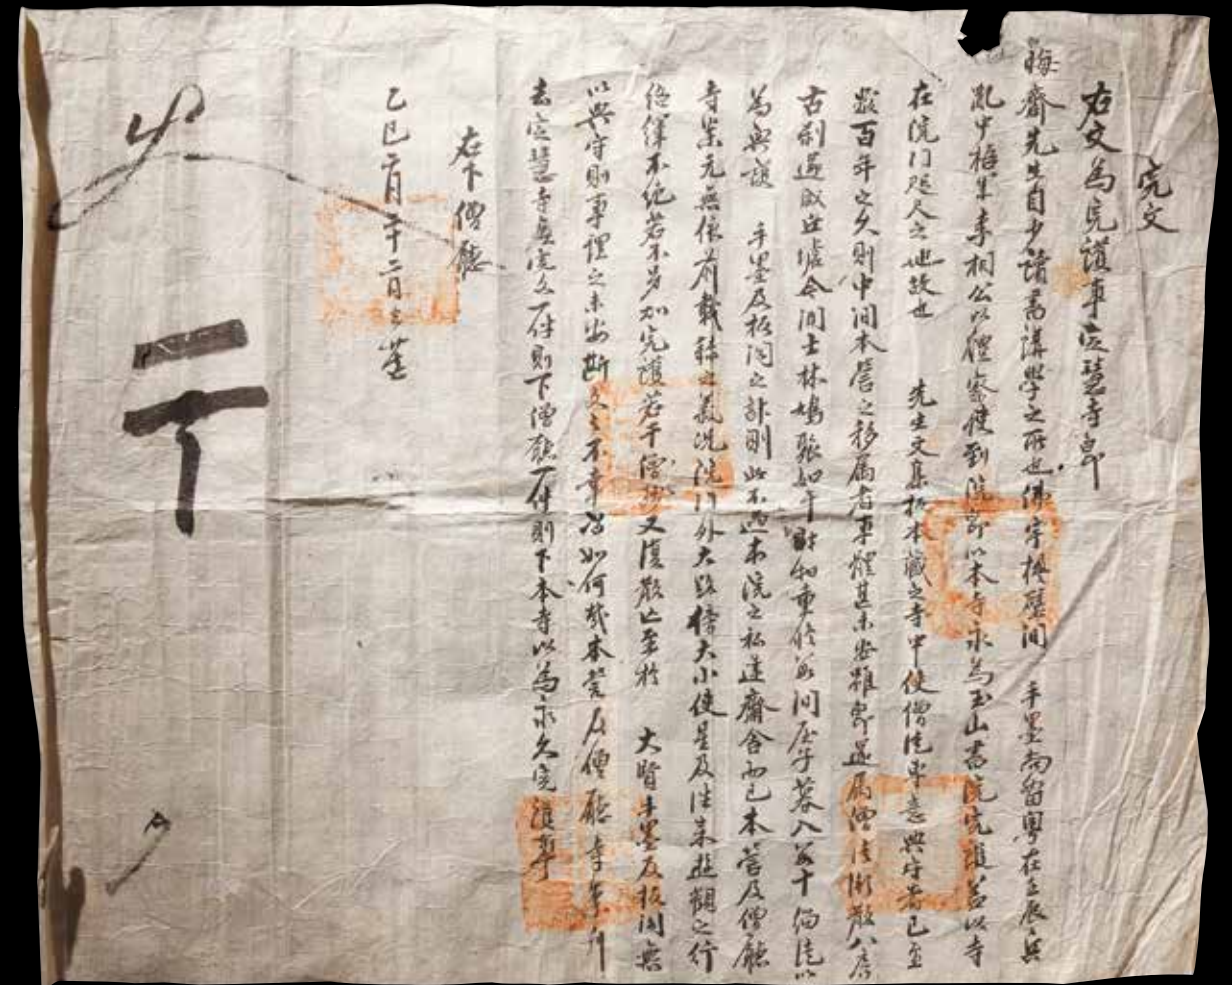 完文
右文爲完護事定慧寺卽
晦齋先生自少讀書講學之所也佛宇板壁間 手墨尙留粤在壬辰兵
亂中梧里李相公以體察使到院卽以本寺永爲玉山書院完護盖以寺
在院門咫尺之地故也 先生文集板本藏之寺中使僧徒專意典守者已至
數百年之久則中間本營之移属者事體甚未安雖卽還属僧徒渙散八房
古刹遂成丘墟今間士林鳩聚如干財知重修數間屋子募入數十僧徒以
爲典護 手墨及板閣之計則此不過本院之私建齋舍而已本營及僧廳
寺案元無依前載錄之義況院門外大路傍大小使星及往來遊觀之行
絡繹不絶若不另加完護若干僧徒又復散亡至於 大賢手墨及板閣無
以典守則事理之未安斯文之不幸當如何哉本營及僧廳寺案
去定慧寺 完文一件則下僧廳一件則下本寺以爲永久完護事
右下僧廳
乙巳二月二十二日